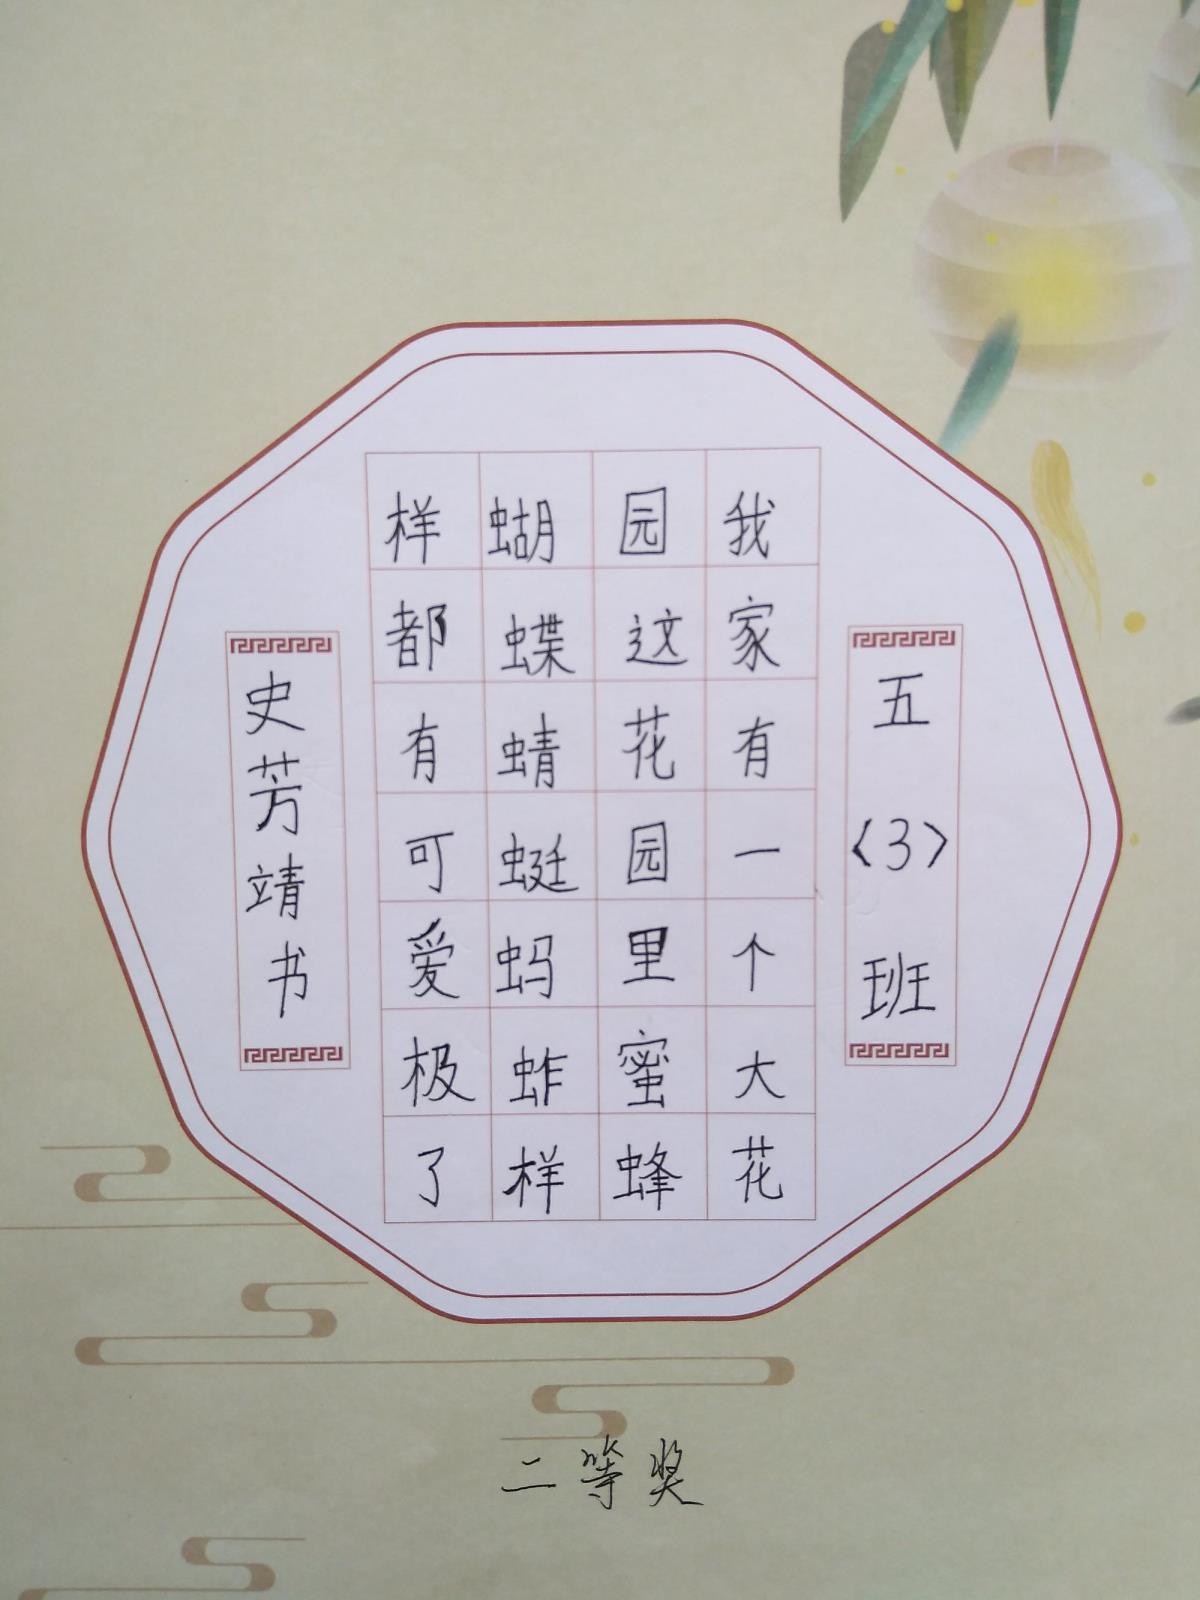 五〈3〉班
我家有一个大花
园这花园里蜜蜂
蝴蝶蜻蜓蚂蚱样
样都有可爱极了
史芳靖书
二等奖